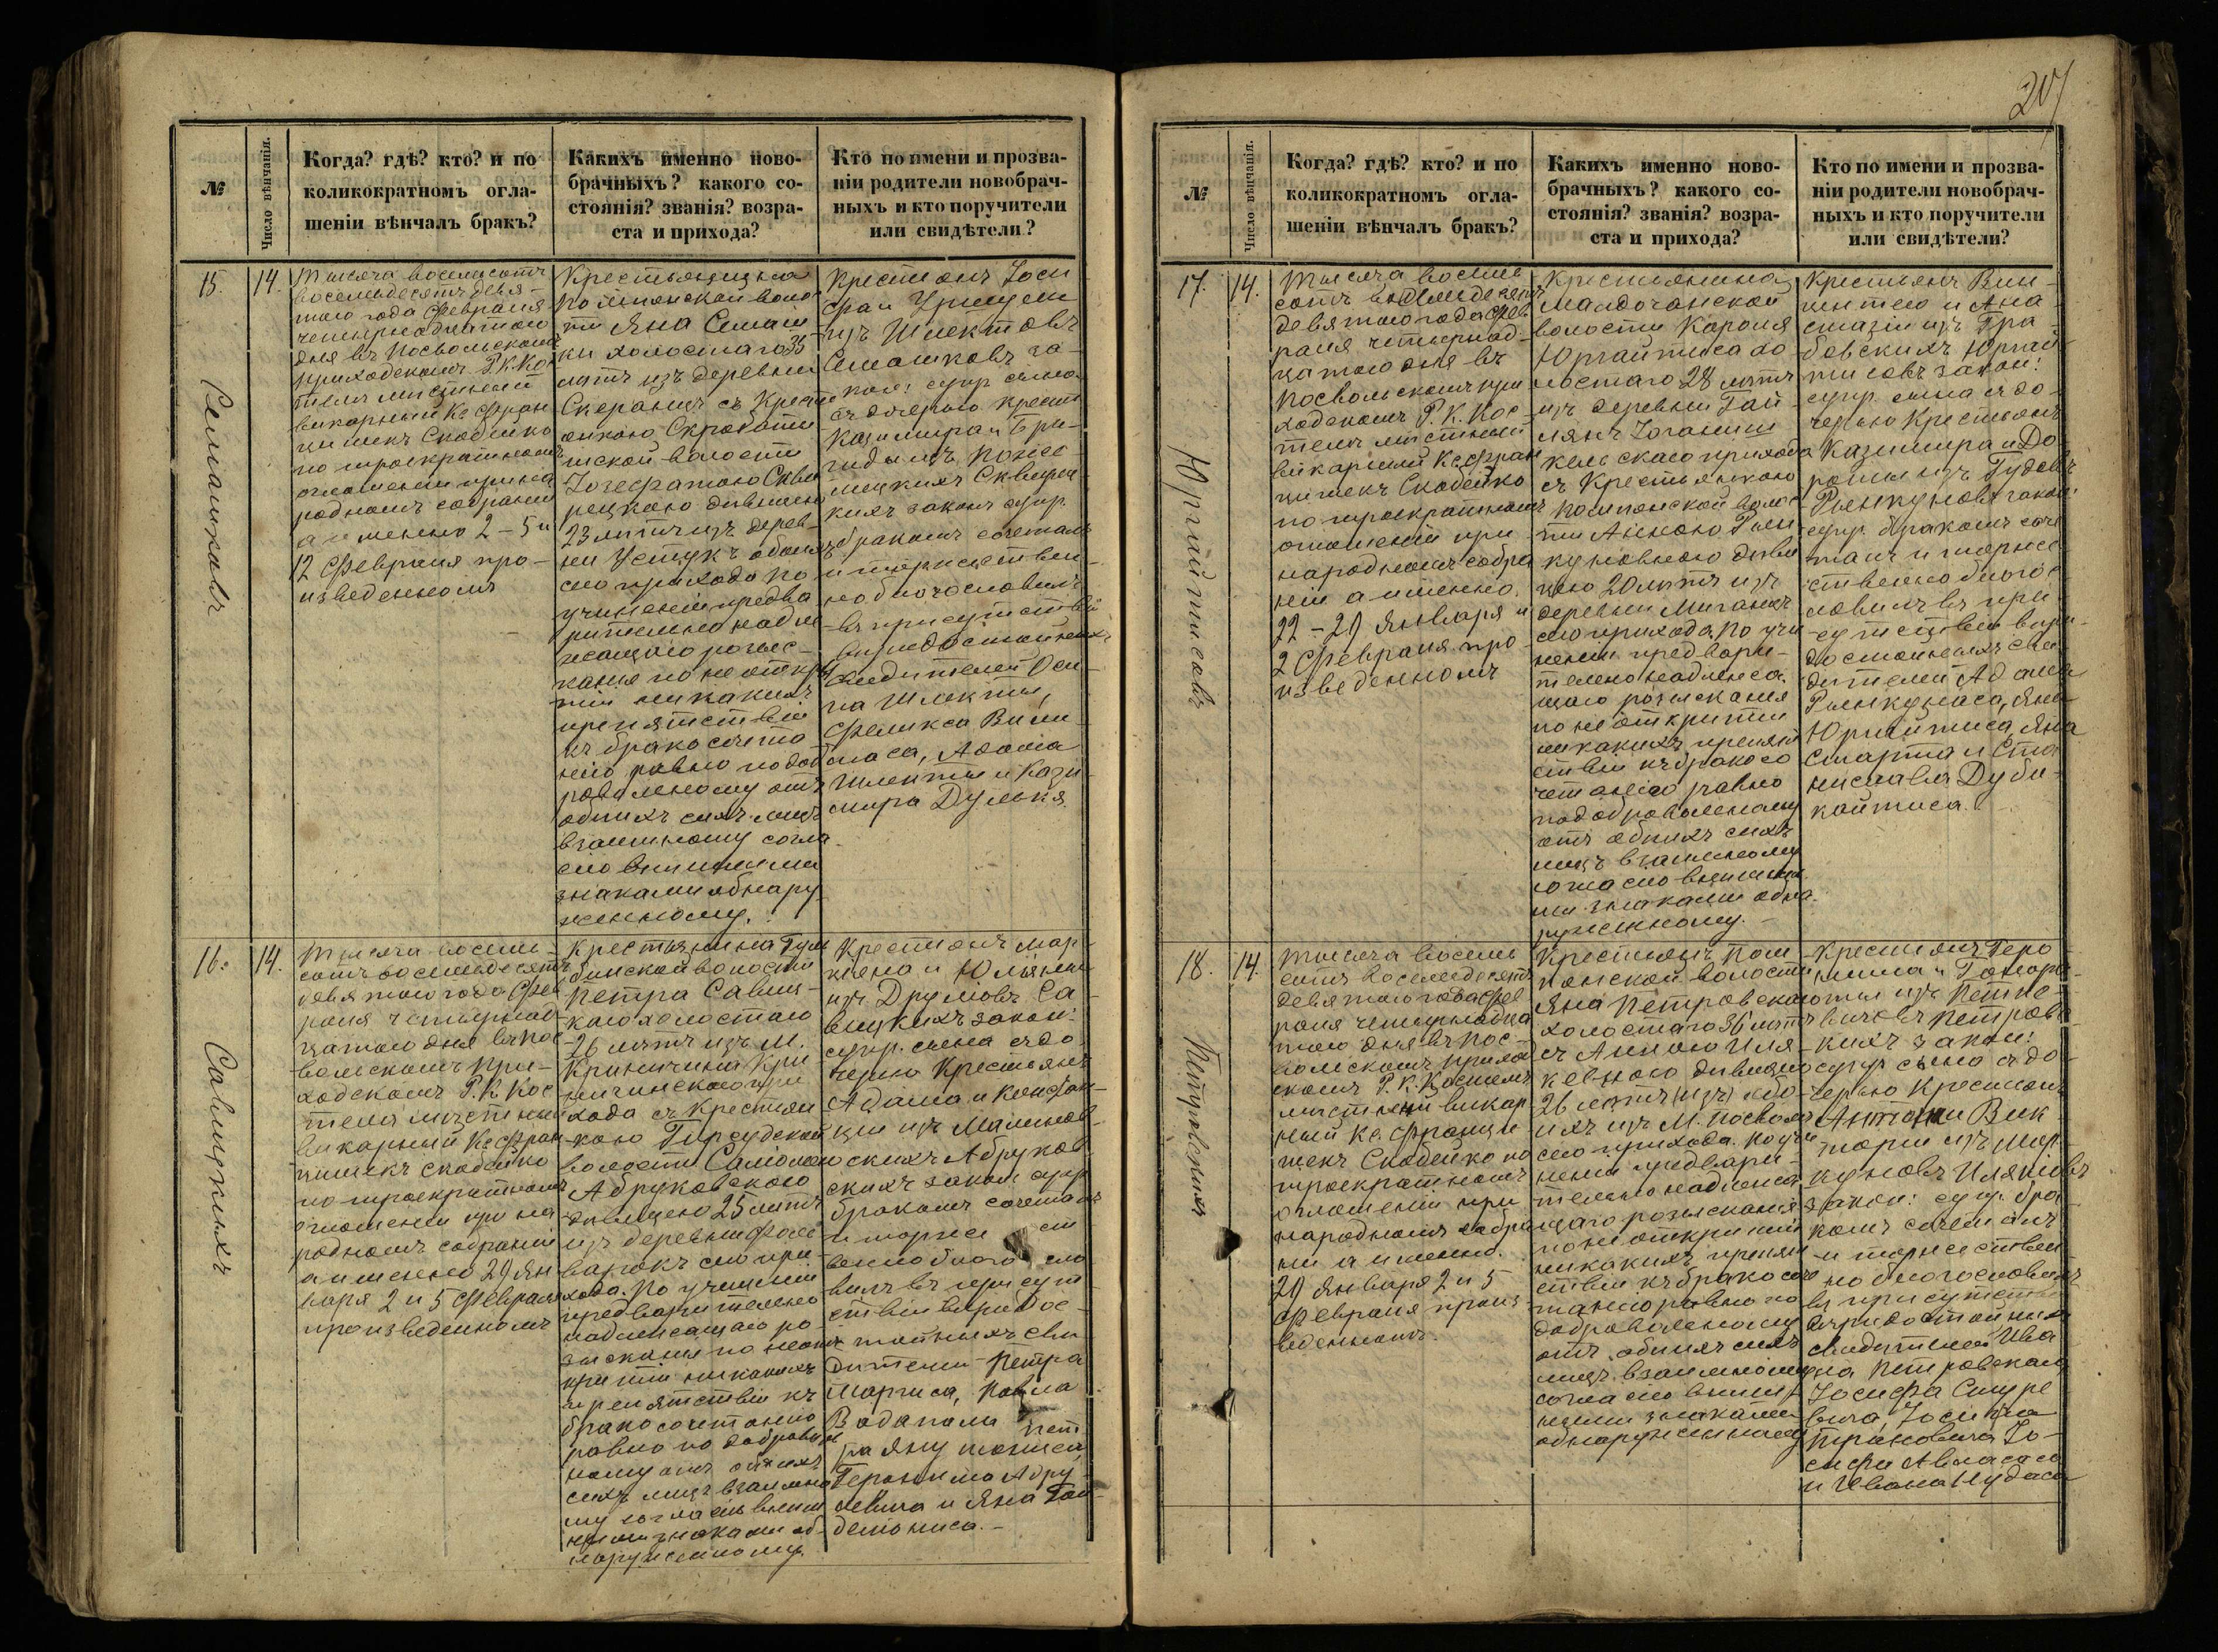 207
№
Число вѣнчанія.
Когда? гдѣ? кто? и по
коликократномъ огла-
шеніи вѣнчалъ бракъ?
Какихъ именно ново-
брачныхъ? какого со-
стоянія? званія? возра-
ста и прихода?
Кто по имени и прозва-
ніи родители новобрач-
ныхъ и кто поручители
или свидѣтели?
15.
14.
Тысяча восемьсотъ
восемьдесятъ девя-
таго года Февраля
четырнадцатаго
дня въ Посвольскомъ
приходскомъ Р. К. Кос
телѣ мѣстный
викарный Кс. Фран
цишекъ Скабейко
по троекратномъ
оглашеніи при на
родномъ собраніи
а именно 2 - 5 и
12 Февраля про-
изведенномъ
Крестьянина
волос
ти Яна Семаш
ки холостаго 35
лѣтъ изъ деревни
съ Крест
янкою
ской волости
Іозефатою Скви
рецкою дѣвицею
23 лѣтъ изъ дерев-
ни Устукъ обоихъ
сего прихода по
учиненіи предва
рительно надле
жащаго розыс-
канія по не откры
тіи никакихъ
препятствій
къ бракосочета
нію равно по доб
ровольному отъ
обоихъ сихъ лицъ
взаимному согла
сію внѣшними
знаками обнару
женному.
Крестьянъ Іоси
фа и Уршули
изъ Шлектовъ
Семашковъ за-
кон: супр. сына
съ дочерью крест
Казимира и Бри-
гиды изъ Понсе
тецкихъ Сквирец
кихъ закон супр.
бракомъ сочеталъ
и торжествен
но благословилъ
въ присутствіи
свидетелей Оси
па Шлекты,
Феликса Вили
маса, Адама
Шлекты и Кази
мира Дулькя.
Семашковъ
16.
14.
Тысяча восемь
сотъ восемьдесятъ
девятаго года Фев
раля четырнад
цатаго дня въ Пос
вольскомъ При-
ходскомъ Р. К. Кос
телѣ мѣстный
викарный Кс. Фран
цишекъ Скабейко
по троекратномъ
оглашеніи при на
родномъ собраніи
а именно 29 Ян
варя 2 и 5 Февраля
произведенномъ
Крестьянина Гум
бинской волости
Петра Савиц-
каго холостаго
26 лѣтъ изъ М.
Криничина Кри
ничинскаго при
хода съ Крестьян
кою Гирсудской
волости Саломеею
Абруковскою
дѣвицею 25 лѣтъ
изъ деревни
варокъ сего при-
хода. По учиненіи
предварительно
надлежащаго ро-
зысканія по неотк
рытіи никакихъ
препятствій къ
бракосочетанію
равно по доброволь
ному отъ обоихъ
сихъ лицъ взаимно
му согласію внѣш
ними знаками об-
наруженному.
Крестьянъ Мар
кіяна и Юліянны
изъ Друліовъ Са
вицкихъ закон:
супр. сына съ до
черью Крестьянъ
Адама и Констан-
ціи изъ Малинов-
скихъ Абруков
скихъ закон супр
бракомъ сочеталъ
и торжест
венно благосло
вилъ въ присут
ствіи вѣридос-
тойныхъ сви
дѣтелей Петра
Маргиса, Павла
Вадапали Пет
ра Янушониса,
Геронима Абру
севича и Яна Гай
делюниса.
Савицкихъ
№
Число вѣнчанія.
Когда? гдѣ? кто? и по
коликократномъ огла-
шеніи вѣнчалъ бракъ?
Какихъ именно ново-
брачныхъ? какого со-
стоянія? званія? возра-
ста и прихода?
Кто по имени и прозва-
ніи родители новобрач-
ныхъ и кто поручители
или свидѣтели?
17.
14.
Тысяча восемь
сотъ восемьдесятъ
девятаго года Фев
раля четырнад-
цатаго дня въ
Посвольскомъ при
ходскомъ Р. К. Кос-
телѣ мѣстный
викарный Кс. Фран
цишекъ Скабейко
по троекратномъ
оглашеніи при
народномъ собра
ніи а именно.
22 - 29 Января и
2 Февраля про-
изведенномъ
Крестьянина
волости Кароля
Юргайтиса хо
лостаго 28 лѣтъ
изъ деревни Гай
лянъ Іоганиш
кельскаго прихода
съ Крестьянкою
волос
ти Анною Рин
куновною дѣви
цею 20 лѣтъ изъ
деревни Миганцъ
сего прихода, По учи
неніи предвари-
тельно надлежа-
щаго розысканія
по не открытіи
никакихъ препят
ствій къ бракосо
четанію равно
по добровольному
отъ обоихъ сихъ
лицъ взаимному
согласію внѣшни
ми знаками обна
руженному.
Крестьянъ Вин-
центаго и Ана
стазіи изъ Гра
бовскихъ Юргай
тисовъ закон:
супр. сына съ до-
черью Крестьянъ
Казимира и До
роты изъ Гудовъ
Ринкуновъ закон:
супр. бракомъ соче
талъ и торже
ственно благос
ловилъ въ при
сутствіи вѣри-
достойныхъ сви
дѣтелей Адама
Ринкунаса, Яна
Юргайтиса, Яна
Смарта и Ста
нислава Дуби
кайтиса.
Юргайтисовъ
18.
14.
Тысяча восемь
сотъ восемьдесятъ
девятаго года Фев
раля четырнадца
таго дня въ Пос-
вольскомъ приход
скомъ Р. К. Костелѣ
мѣстный викар
ный Кс. Франци
шекъ Скабейко по
троекратномъ
оглашеніи при
народномъ собра
ніи а именно.
29 Января 2 и 5
Февраля произ
веденномъ.
Крестьянъ
волости
Яна Петровскаго
холостаго 36 лѣтъ
съ Анною Иля-
кевною дѣвицею
26 лѣтъ обо
ихъ изъ М. Посволя
сего прихода. По учи
неніи предвари-
тельно надлежа
щаго розысканія
по не открытіи
никакихъ препят
ствій къ бракосоче
танію равно по
добровольному
отъ обоихъ сихъ
лицъ взаимному
согласію внѣш
ними знаками
обнаруженному
Крестьянъ Геро
нима и
изъ
Петров
скихъ закон:
супр сына съ до-
черью Крестьянъ
Антона и Вик
торіи изъ Мар
куновъ Иляковъ
закон: супр. бра
комъ сочеталъ
и торжествен
но благословилъ
въ присутствіи
вѣридостойныхъ
свидѣтелей Ива
на Петровскаго
Іосифа Стуре
вича, Іосифа
Трановича Іо-
сифа
и Ивана Нудаса
Петровскихъ